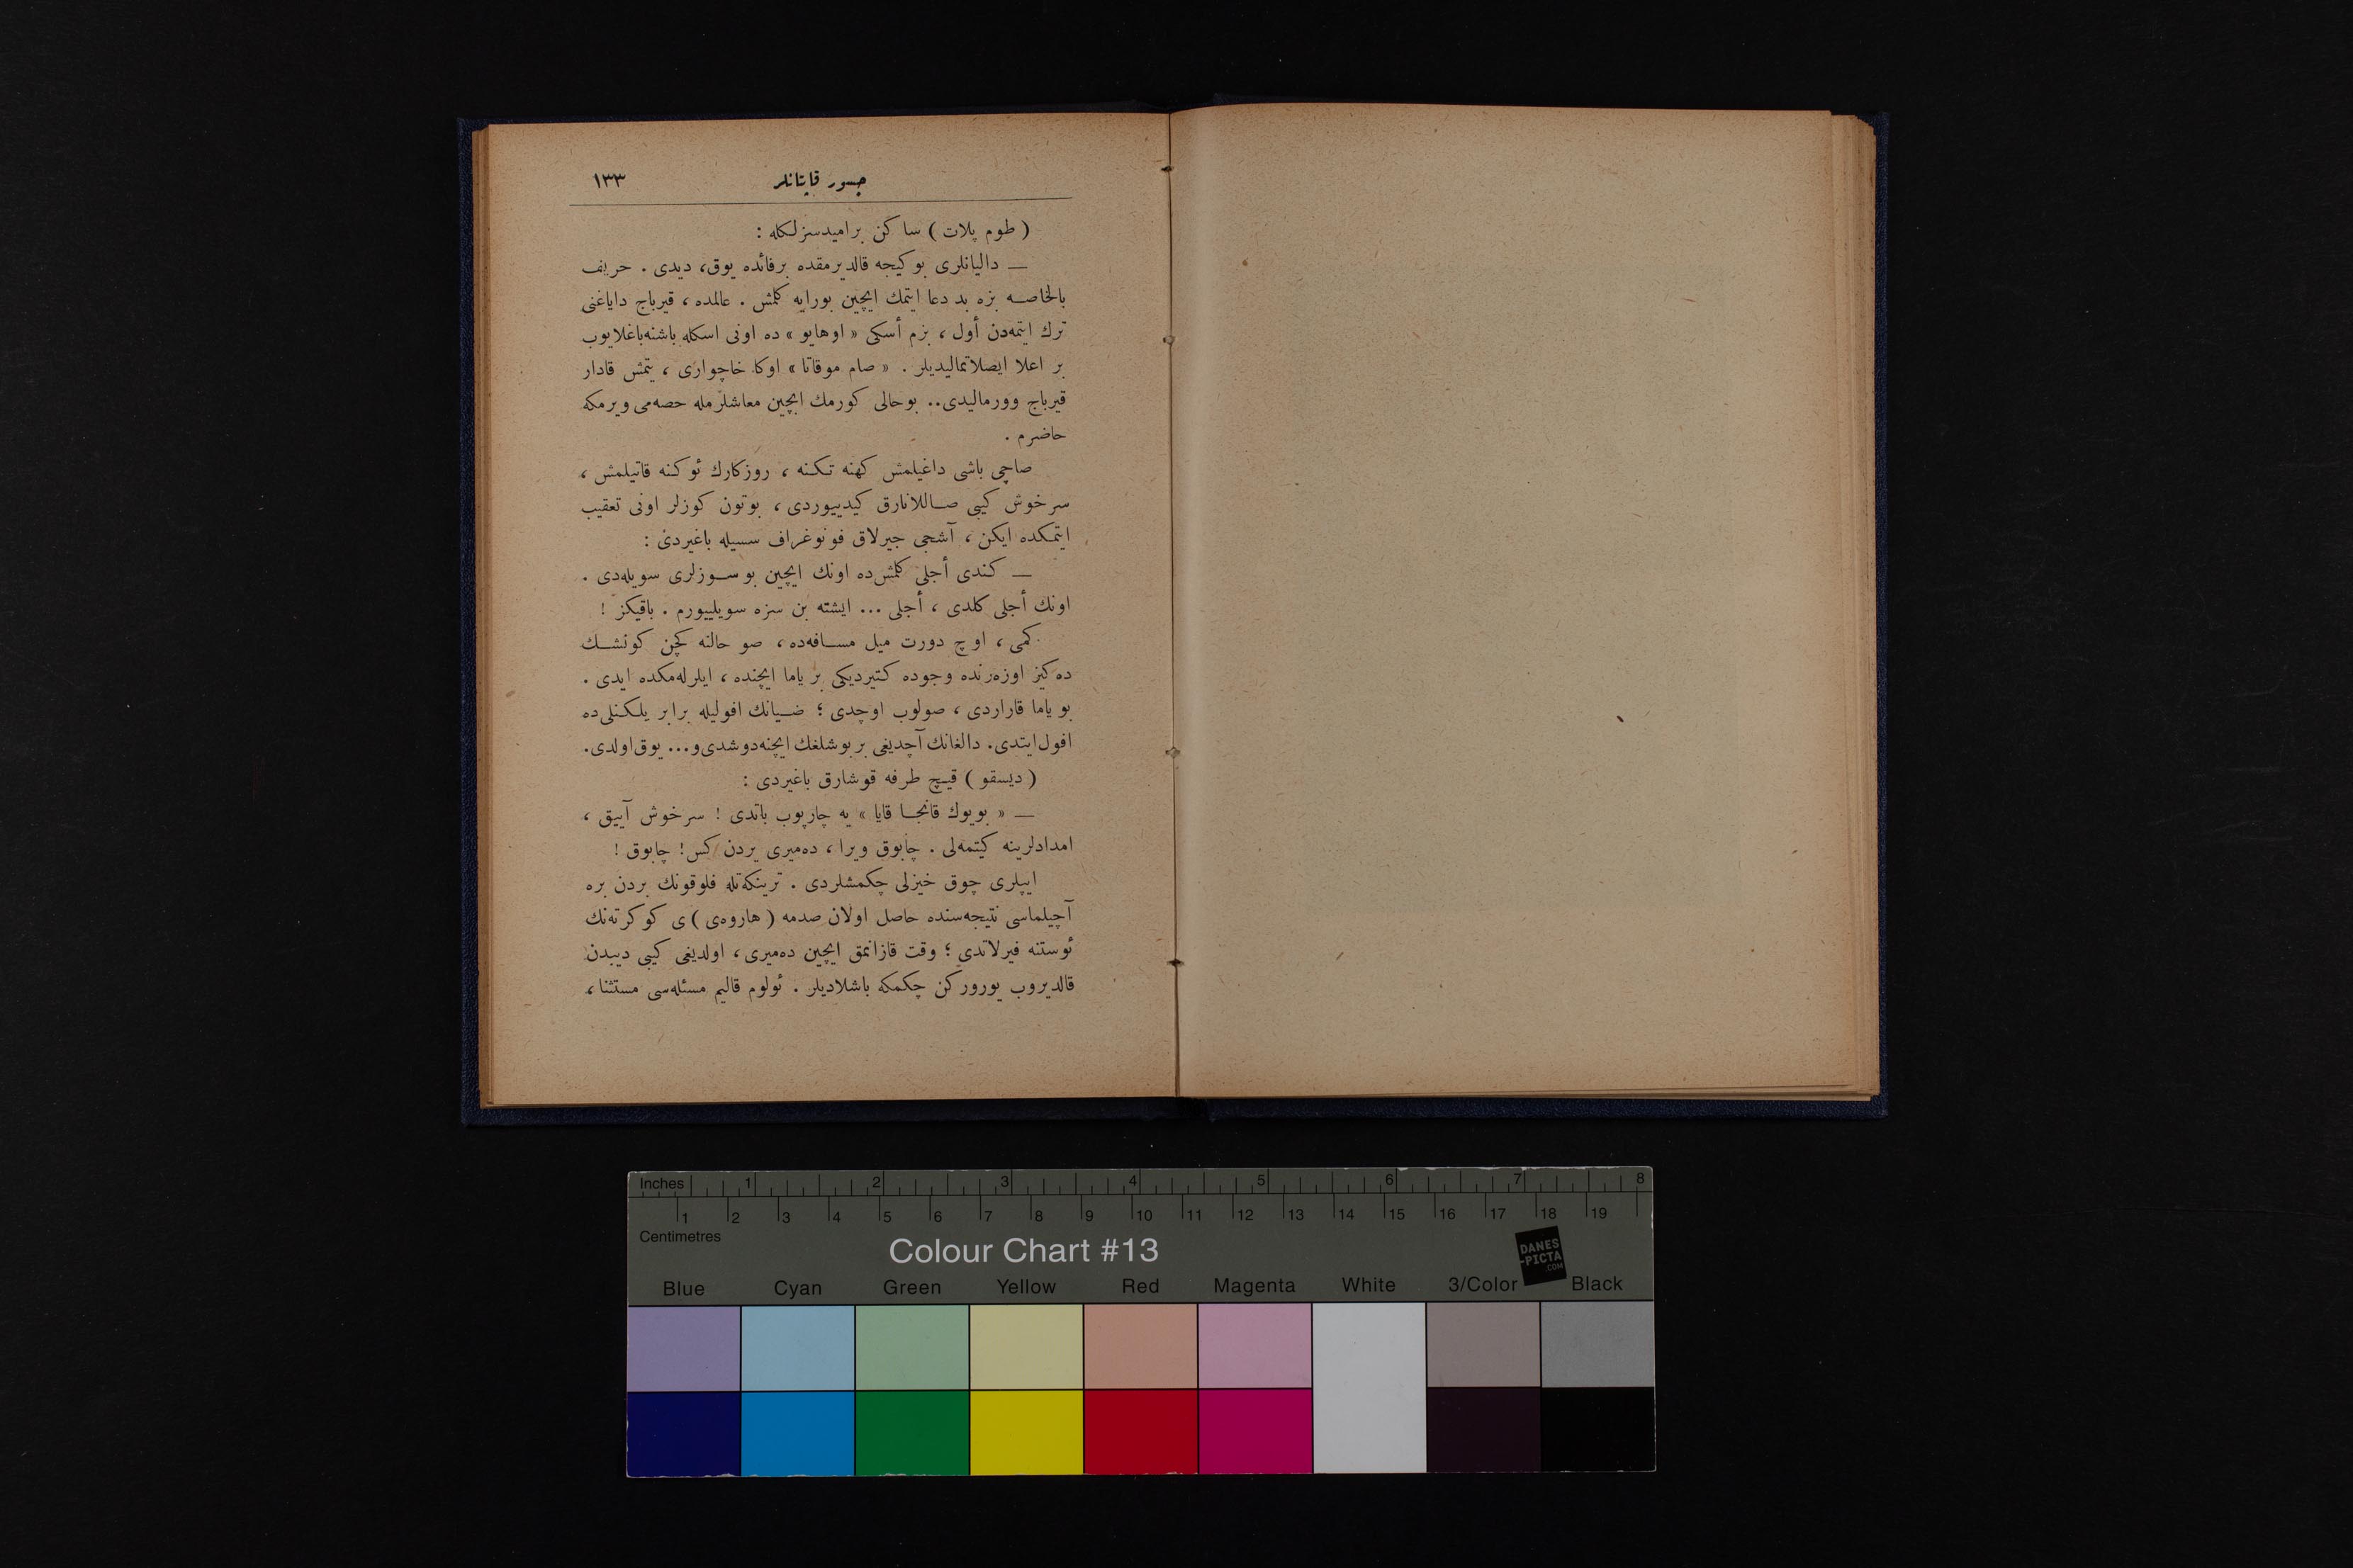 جسور قاپتانلر
١٣٣
( طوم پلات ) ساكن براميدسزلكله :
— داليانلرى بوكيجه قالديرمقده برفائده يوق، ديدى . حريف
بالخاصه بزه بد دعا ايتمك ايچين بورايه كلمش . عالمده ، قيرباج داياغنى
ترك ايتمه‌دن أول ، بزم أسكى « اوهايو » ده اونى اسكله باشنه‌باغلايوب
بر اعلا ايصلاتماليديلر . « صام موقاتا » اوكا خاچوارى ، يتمش قادار
قيرباج وورماليدى.. بوحالى كورمك ايچين معاشلرمله حصه‌مى ويرمكه
حاضرم .
صاچى باشى داغيلمش كهنه تكنه ، روزكارك ئوكنه قاتيلمش ،
سرخوش كيبى صاللانارق كيدييوردى ، بوتون كوزلر اونى تعقيب
ايتمكده ايكن ، آشجى جيرلاق فونوغراف سسيله باغيردى :
— كندى أجلى كلمش‌ده اونك ايچين بو سوزلرى سويله‌دى .
اونك أجلى كلدى ، أجلى ... ايشته بن سزه سويلييورم . باقيكز !
كمى ، اوچ دورت ميل مسافه‌ده ، صو حالنه كچن كونشك
ده‌كيز اوزه‌رنده وجوده كتيرديكى بر ياما ايچنده ، ايلرله‌مكده ايدى .
بو ياما قاراردى ، صولوب اوچدى ؛ ضيانك افوليله برابر يلكنلى‌ده
افول‌ايتدى. دالغانك آچديغى بر بوشلغك ايچنه‌دوشدى‌و... يوق‌اولدى.
( ديسقو ) قيچ طرفه قوشارق باغيردى :
— « بويوك قانجا قايا » يه چارپوب باتدى ! سرخوش آييق ،
امدادلرينه كيتمه‌لى . چابوق ويرا ، ده‌ميرى يردن كس! چابوق !
ايپلرى چوق خيزلى چكمشلردى . ترينكه‌تله فلوقونك بردن بره
آچيلماسى نتيجه‌سنده حاصل اولان صدمه ( هاروه‌ى ) ى كوكرته‌نك
ئوستنه فيرلاتدى ؛ وقت قازانمق ايچين ده‌ميرى ، اولديغى كيبى ديبدن
قالديروب يوروركن چكمكه باشلاديلر . ئولوم قاليم مسئله‌سى مستثنا ،
Inches 1 2 3 4 5 6 7 8
1 2 3 4 5 6 7 8 9 10 11 12 13 14 15 16 17 18 19
Centimetres
Colour Chart #13
DANES
-PICTA
.COM
Blue Cyan Green Yellow Red Magenta White 3/Color Black